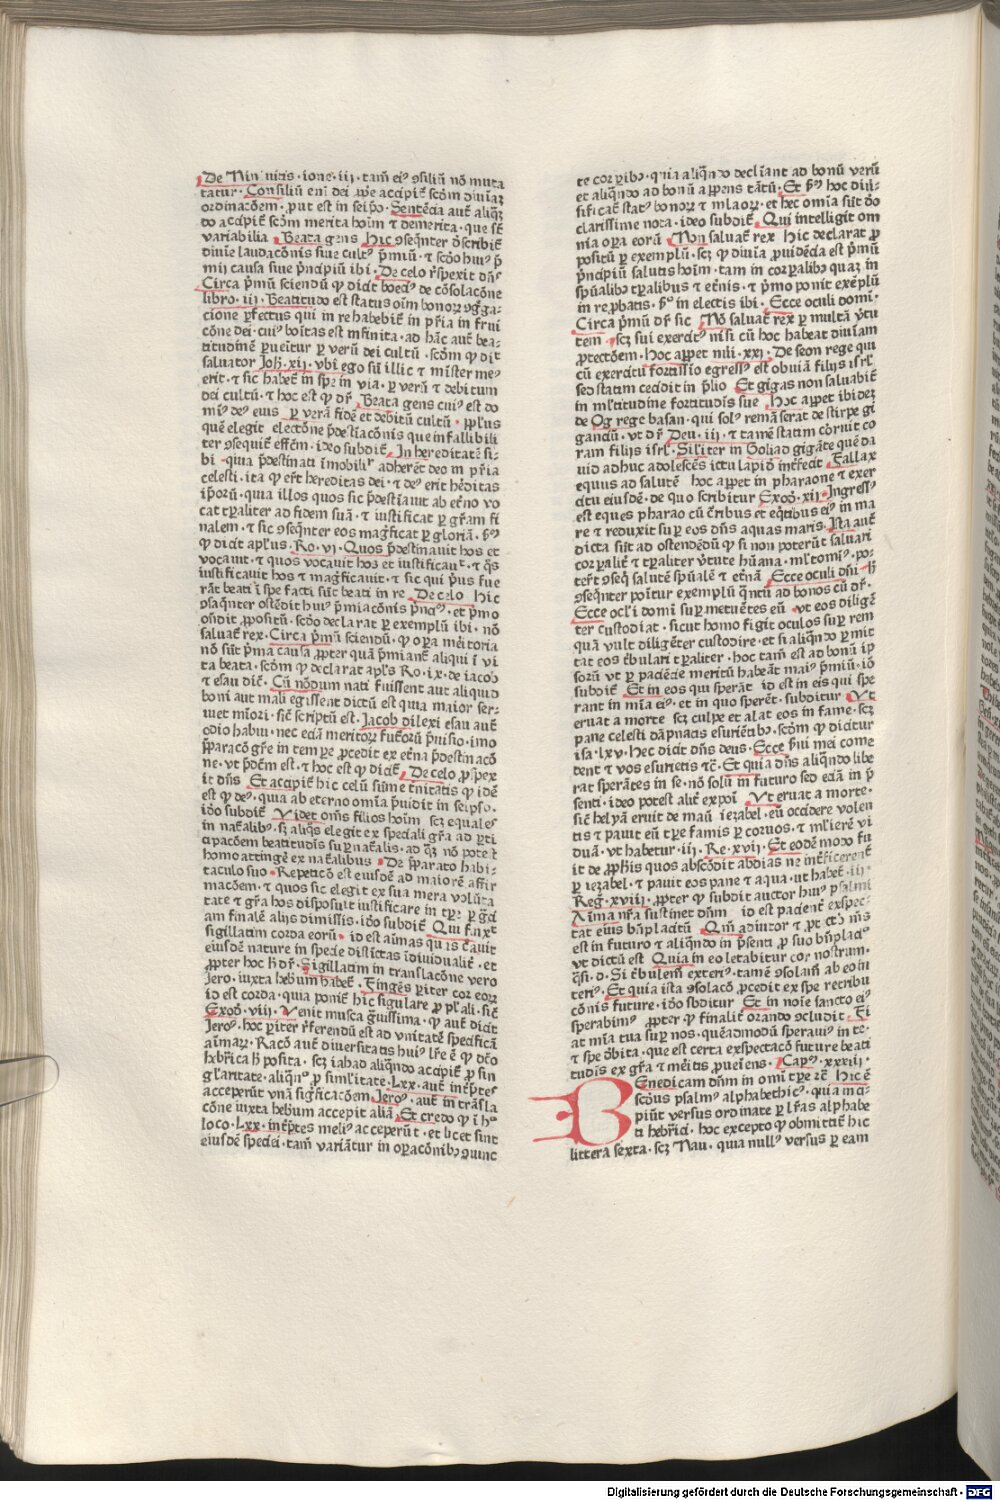 De Niniuitis · ione · iij · tam̄ ei⁹ ꝯsiliū nō muta
tatur · Consiliū em̄ dei ꝓprie accipit̄ scd̄m diuinaꝫ
ordinacōem · ꝓut est in seip̄o · Sentēcia aut̄ aliqn̄
do accipit̄ scd̄m merita hoīm ⁊ demerita · que sūt
variabilia · Beata gens Hic ꝯseqn̄ter dscribit̄
diuīe laudacōnis siue cult⁹ p̄miū · ⁊ scd̄o hui⁹ p̄
mij causa siue p̄ncipiū ibi · De celo r̄spexit dn̄s
Circa p̄mū sciendū ꝙ dicit boeci⁹ de cōsolacōne
libro · iij · Beatitudo est status oīm bonoꝝ ꝯg̃ga-
cione ꝑfectus qui in re habebit̄ in pr̄ia in frui
cōne dei · cui⁹ boītas est infinita · ad hāc aut̄ bea-
titudinē ꝑueītur ꝑ verū dei cultū · scd̄m ꝙ dic
saluator Joh̄ · xij · vbi ego sū illic ⁊ mister me⁹
erit · ⁊ sic habet̄ in spe in via · ꝑ verū ⁊ debitum
dei cultū · ⁊ hoc est ꝙ dr̄ · Beata gens cui⁹ est do
mi⁹ de⁹ eius ꝑ verā fidē et debitū cultū · ꝓpl̄us
quē elegit electōne p̄destiacōnis que infallibili
ter ꝯsequit̄ effēm · ideo subdit̄ · In hereditatē si-
bi · quia p̄destinati īmobilit̄ adherēt deo in pr̄ia
celesti · ita ꝙ erūt hereditas dei · ⁊ de⁹ erit h̄editas
ip̄oꝝ · quia illos quos sic p̄destiauit ab et̄no vo
cat tꝑaliter ad fidem suā · ⁊ iustificat ꝑ gr̄am fi
nalem · ⁊ sic ꝯseqn̄ter eos mag̃ficat ꝑ gloriā · scd̄m
ꝙ dicit apl̄us · Ro · vj · Quos p̄destinauit hos et
vocauit · ⁊ quos vocauit hos et iustificauit · ⁊ q̄s
iustificauit hos ⁊ mag̃ficauit · ⁊ sic qui p̄us fue
rāt beati ī spe facti sūt beati in re · De celo Hic
ꝯsaqn̄ter ostēdit hui⁹ p̄miacōnis p̄ncip̄ · et p̄mo
oñdit ꝓpositū · scd̄o declarat ꝑ exemplū ibi · nō
saluat̄ rex · Circa p̄mū sciendū · ꝙ oꝑa mēitoria
nō sūt p̄ma causa ꝓpter quā p̄miant̄ aliqui ī vi
ta beata · scd̄m ꝙ declarat apl̄s Ro · ix · de iacob
⁊ esau dic̄ · Cū nōdum nati fuissent aut aliquid
boni aut mali egissent dictū est quia maior ser-
uiet mīori · sic̄ scriptū est · Jacob dilexi esau aut̄
odio habui · nec eciā meritoꝝ futuroꝝ p̄uisio · imo
p̄paracō gr̄e in tempꝑe ꝓcedit ex et̄na p̄destinacō
ne · vt p̄dc̄m est · ⁊ hoc est ꝙ dicit̄ · De celo ꝓspex
it dn̄s Et accipit̄ hic celū sūme t̄nitatis ꝙ idē
est ꝙ de⁹ · quia ab eterno om̄ia p̄uidit in seipso ·
ideo subdit̄ Videt om̄s filios hoīm scꝫ equales
in nat̄alib⁹ · sꝫ aliqs elegit ex speciali gr̄a ad ꝑti
cipacōem beatitudīs suꝑnat̄alis · ad qꝫ nō potest
homo attingē ex nat̄alibus · De p̄parato habi-
taculo suo · Repeticō est eiusdē ad maiorē affir
macōem · ⁊ quos sic elegit ex sua mera volūta
tate ⁊ gr̄a hos disposuit iustificare in tꝑe ꝑ gr̄a
am finalē alijs dimissis · ideo subdit̄ Qui finxit
sigillatim corda eorū · id est aīmas quas creauit
eiusdē nature in specie distictas īdiuidualit̄ · et
ꝓpter hoc h̄ dr̄ · Sigillatim in translacōne vero
Jero · iuxta hebr̄um habet̄ · Fingēs pariter cor eoꝝ
id est corda · quia ponit̄ hic sigulare ꝓ pl̄ali · sic̄
Exod̄ · viij · Venit musca g̃uissima · ꝙ aut̄ dicit
Jero⁹ · hoc ꝑiter r̄ferendū est ad vnitatē specificā
aīmaꝝ · Racō aut̄ diuersitatis hui⁹ lr̄e ē ꝙ dicō
hebraica h̄ posita · scꝫ iahad aliqn̄do accipit̄ ꝓ sin
gl̄aritate · aliqn̄ ꝓ simil̄itate · Lxx · aut̄ int̄pres
acceperūt vnā sig̃ficacōem · Jero⁹ · aut̄ in trāsla
cōne iuxta hebr̄um accepit aliā · Et credo ꝙ ī h⁹
loco · Lxx · int̄ptes meli⁹ acceperūt · et licet sint
eiusdē speciei · tam̄ variātur in oꝑacōnib⁹ ꝯuinc
te corꝑib⁹ · quia aliqn̄do declīant ad bonū verū
et aliqn̄do ad bonū apꝑens tm̄tū · Et ꝓpt̄ hoc diūi-
sificat̄ stat⁹ bonoꝝ ⁊ maloꝝ · et hec om̄ia sūt deo
clarissime nota · ideo subdit̄ · Qui intelligit om
nia oꝑa eorū · Non saluat̄ rex Hic declarat ꝓ
positū ꝑ exemplū · scꝫ ꝙ diuīa ꝓuidēcia est p̄mū
p̄ncipiū salutis hoīm · tam in corꝑalib⁹ quaꝫ in
spūalib⁹ tꝑalibus ⁊ et̄nis · ⁊ p̄mo ponit exēplū
in reꝓbatis · scd̄o in electis ibi · Ecce oculi domi ·
Circa p̄mū dr̄ sic · Nō saluat̄ rex ꝑ multā v̄tu
tem · scꝫ sui exercit⁹ nisi cū hoc habeat diuinam
ꝓtectōem · Hoc apꝑet nūi · xxj · De seon rege qui
cū exercitu fortissio egress⁹ est obuiā filijs isrl̄
sed statim cecidit in p̄lio · Et gigas non saluabit̄
in ml̄titudine fortitudis sue · Hoc apꝑet ibidez
de Og rege basan · qui sol⁹ remāserat de stirpe gi
gancū · vt dr̄ Deu · iij · ⁊ tamē statim cōruit co
ram filijs isrl̄ · Sil̄iter in Goliad gigāte quē da
uid adhuc adolescēs ictu lapid̄ int̄fecit Fallax
equus ad salutē hoc apꝑet in pharaone ⁊ exer
citu eiusdē · de quo scribitur Exod̄ · xij · Ingress⁹
est eques pharao cū c̄ribus et eqtibus ei⁹ in ma
re ⁊ reduxit suꝑ eos dn̄s aquas maris · Ista aut̄
dicta sūt ad ostendēdū ꝙ si non poterūt saluari
corꝑalit̄ ⁊ tꝑaliter v̄tute hūana · ml̄tomī⁹ · po-
tert̄ ꝯseq̄ salutē spūalē ⁊ et̄nā · Ecce oculi dn̄i · h̄
ꝯseqn̄ter poītur exemplū q̄ntū ad bonos cū dr̄ ·
Ecce ocl̄i domi suꝑ metuētes eū · vt eos diligē
ter custodiat · sicut homo figit oculos suꝑ rem
quā vult diligēter custodire · et si aliqn̄do ꝑmit
tat eos t̄bulari tꝑaliter · hoc tam̄ est ad bonū ip
soꝝ vt ꝑ paciēcie meritū habeāt mai⁹ p̄miū · iō
subdit̄ Et in eos qui sperāt id est in eis qui spe
rant in mīa ei⁹ · et in quo sperēt · subditur · Vt
eruat a morte scꝫ culpe et alat eos in fame · scꝫ
pane celesti dāpnacis esuriētib⁹ · scd̄m ꝙ dicitur
isa · lxv · Hec dicit dn̄s deus · Ecce s̄ui mei come
dent ⁊ vos esurietis ⁊c̄ · Et quia dn̄s aliqn̄do libe
rat sperātes in se · nō solū in futuro sed eciā in p̄
senti · ideo potest alit̄ expoī Vt eruat a morte ·
sic̄ helyā eruit de manu iezabel · eū occidere volen
tis ⁊ pauit eū tꝑe famis ꝑ coruos · ⁊ ml̄ierē vi
duā · vt habetur · iij · Re · xvij · Et eodē modo fu
it de ꝓphis quos abscōdit abdias ne int̄ficerent̄
ꝑ iezabel · ⁊ pauit eos pane ⁊ aqua · ut habet̄ · iij ·
Reg̃ · xviij · ꝓpter ꝙ subdit auctor hui⁹ psalmi
Aīma nr̄a sustinet dn̄m id est pacient̄ exspec-
tat eius bn̄placitū Qm̄ adiutor ⁊ ꝓtctō nr̄s
est in futuro ⁊ aliqn̄do in p̄senti ꝓ suo bn̄placi⁹
vt dictū est Quia in eo letabitur cor nostrum ·
q̄si · d · Si t̄bulem̄ exteri⁹ · tamē ꝯsolam̄ ab eo in
teri⁹ · Et quia ista ꝯsolacō ꝓcedit ex spe retribu
cōnis future · ideo sbditur Et in noīe sancto ei⁹
sperabim⁹ ꝓpter ꝙ finalit̄ orando ꝯcludit · Fi
at mīa tua suꝑ nos · quēadmodū sperauim⁹ in te ·
⁊ spe debita · que est certa exspectacō future beati
tudis ex gr̄a ⁊ meritis ꝓueiens · Cap̄⁹ · xxxiij ·
Benedicam dn̄m in omī tꝑe ⁊c̄ Hic ē
scd̄us psalm⁹ alphabethic⁹ · quia in ci-
piūt versus ordinate ꝑ lr̄as alphabe
ti hebr̄ici · hoc excepto ꝙ obmittit̄ hic
littera sexta · scꝫ Nau · quia null⁹ versus ꝑ eam
Digitalisierung gefördert durch die Deutsche Forschungsgemeinschaft · DFG